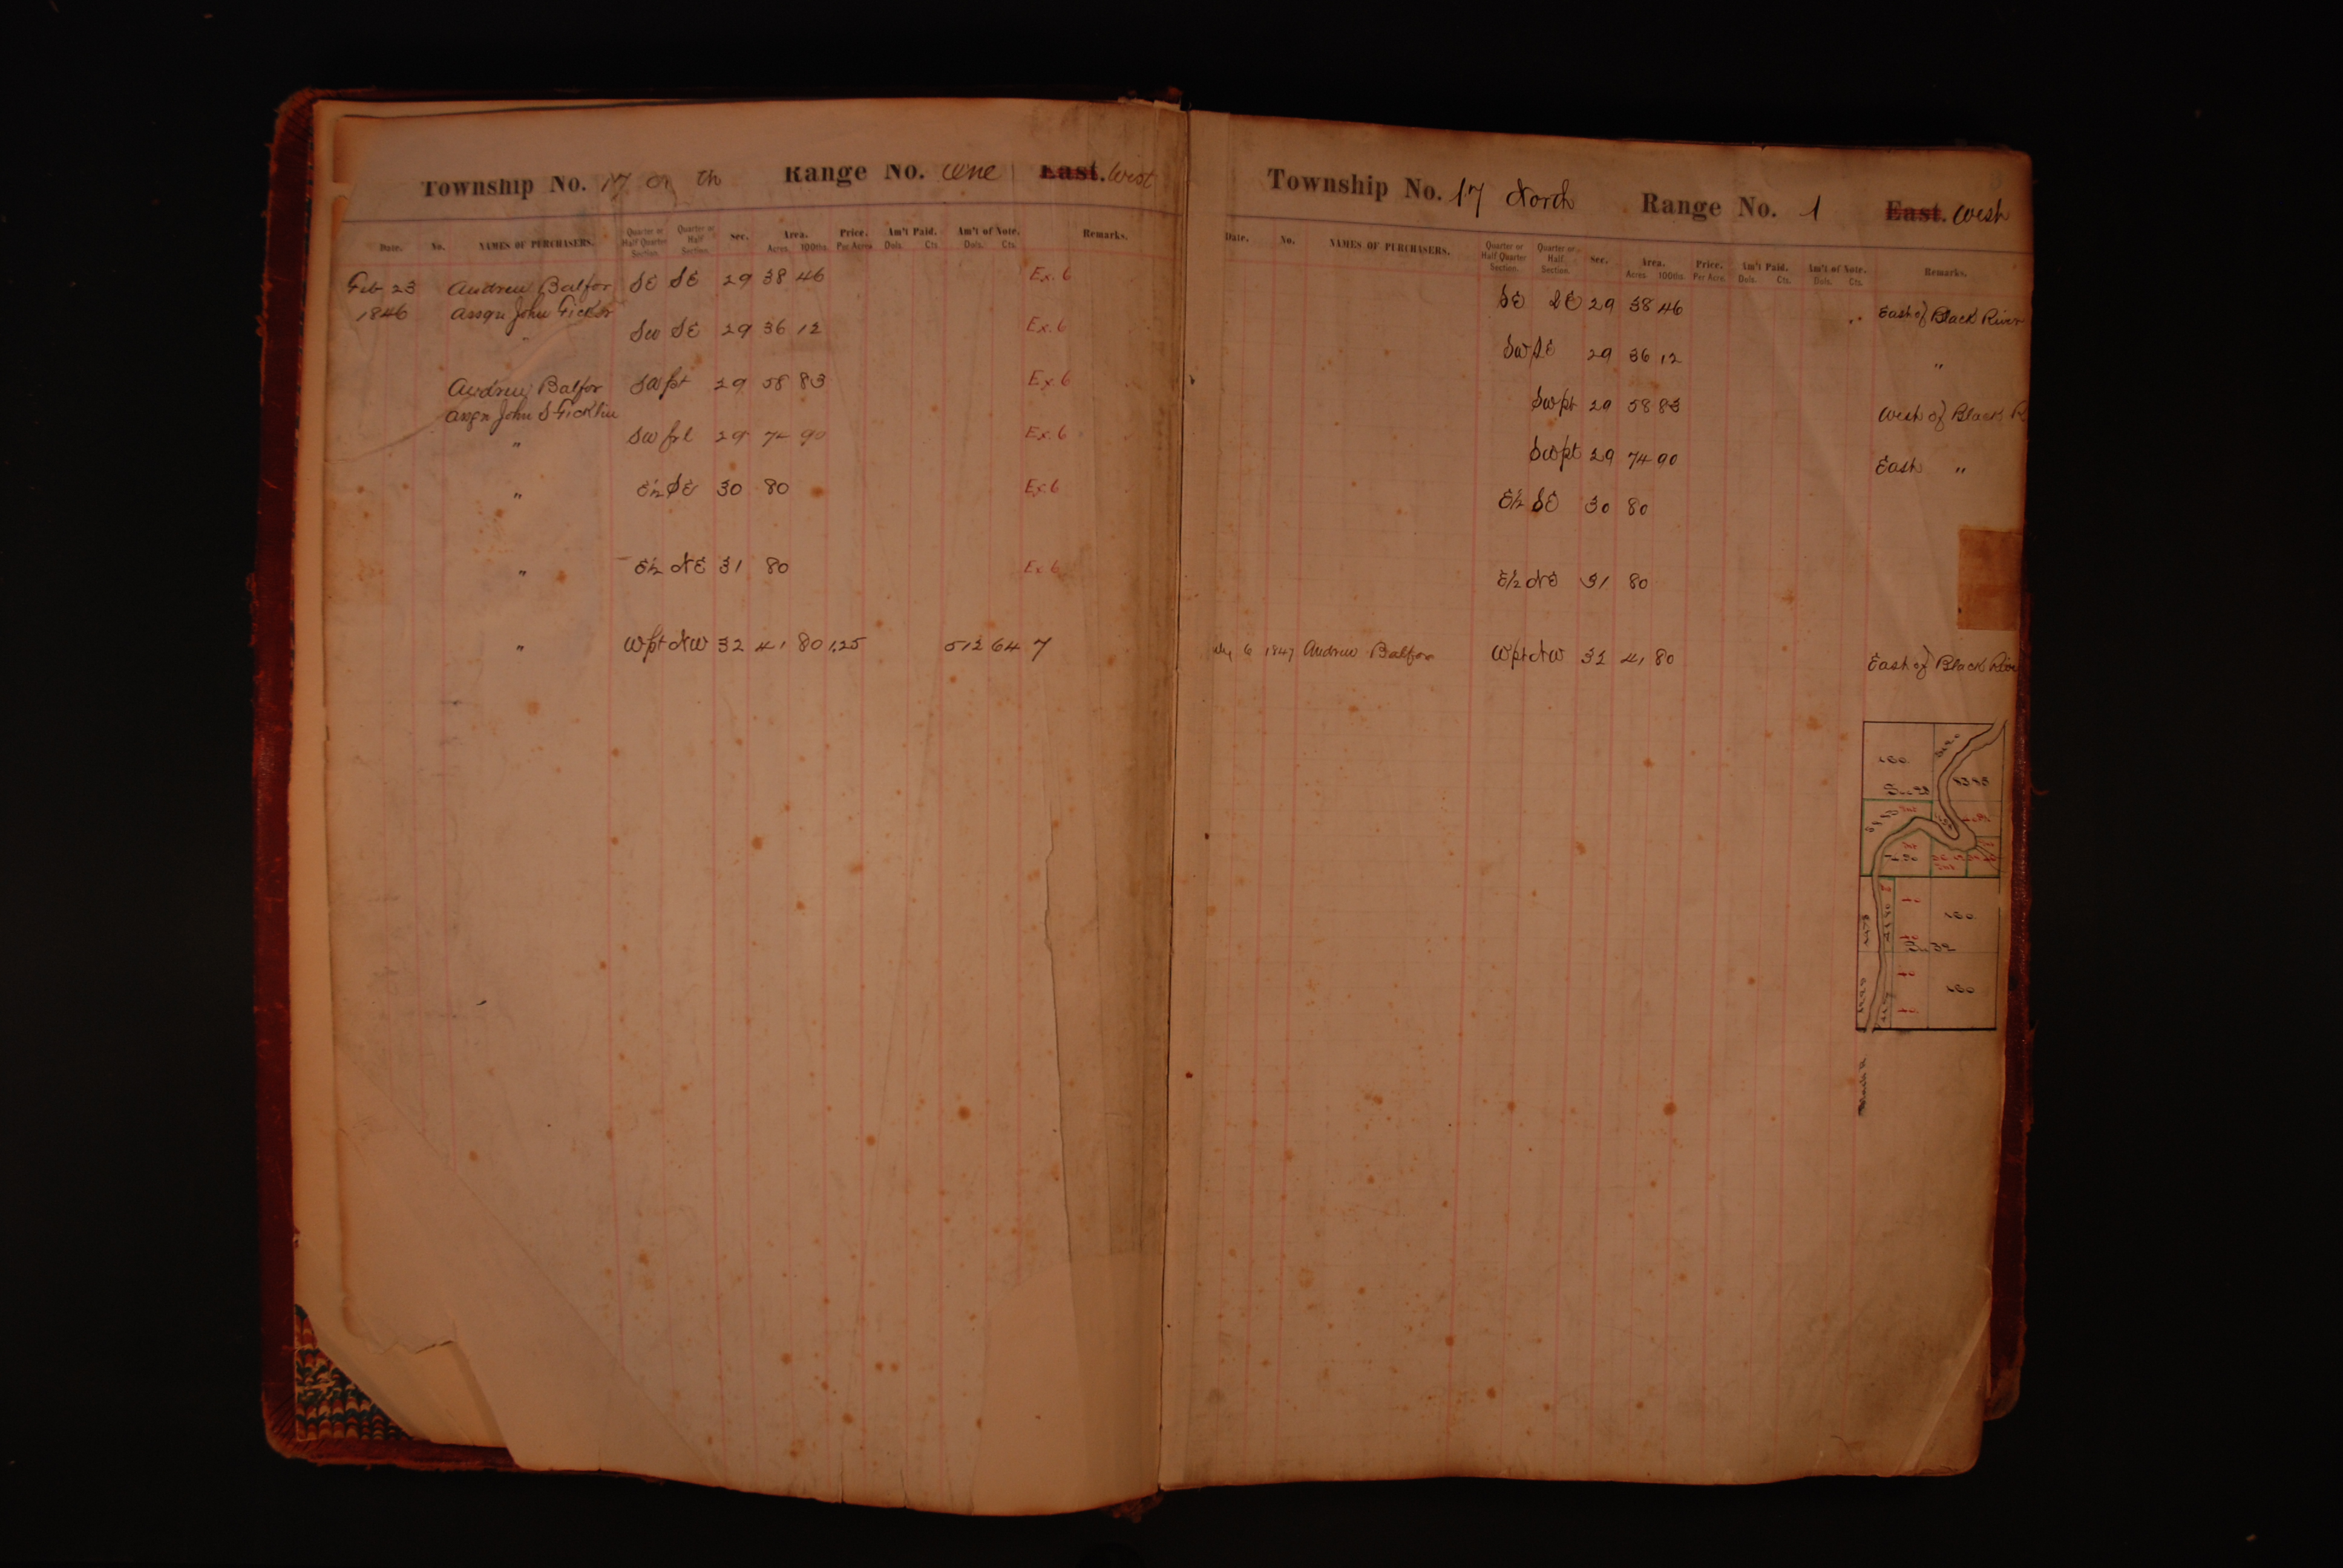 Township No. 17 North Range No. One East. West
Date. No. NAMES OF PURCHASERS. Quarter or Half Quarter Section. Quarter or Half Section. Sec. Area. Acres. 100ths. Price. Per Acre. Am't Paid. Dols. Cts. Am't of Note. Dols. Cts. Remarks.
Feb 23 Andrew Balfor SE SE 29 38 46 Ex. 6
1846 assgn John Ficklin
" Sw SE 29 36 12 Ex. 6
Andrew Balfor Sw pt 29 58 83 Ex 6
assgn John S Ficklin
" Sw frl 29 74 90 Ex. 6
" E½ SE 30 80 Ex 6
" E½ NE 31 80 Ex 6
" W pt NW 32 41 80 1.25 512 64 7
Township No. 17 North Range No. 1 East. West
Date. No. NAMES OF PURCHASERS. Quarter or Half Quarter Section. Quarter or Half. Section. Sec. Area. Acres 100ths. Price. Per Acre. Am't Paid. Dols. Cts. Am't of Note. Dols. Cts. Remarks.
SE SE 29 38 46 East of Black River
Sw SE 29 36 12 "
Sw pt 29 58 83 West of Black R
Sw pt 29 74 90 East "
E½ SE 30 80
E½ NE 31 80
6 1847 Andrew Balfor W pt NW 32 41 80 East of Black River
160
160
Sec 32
160
Black R